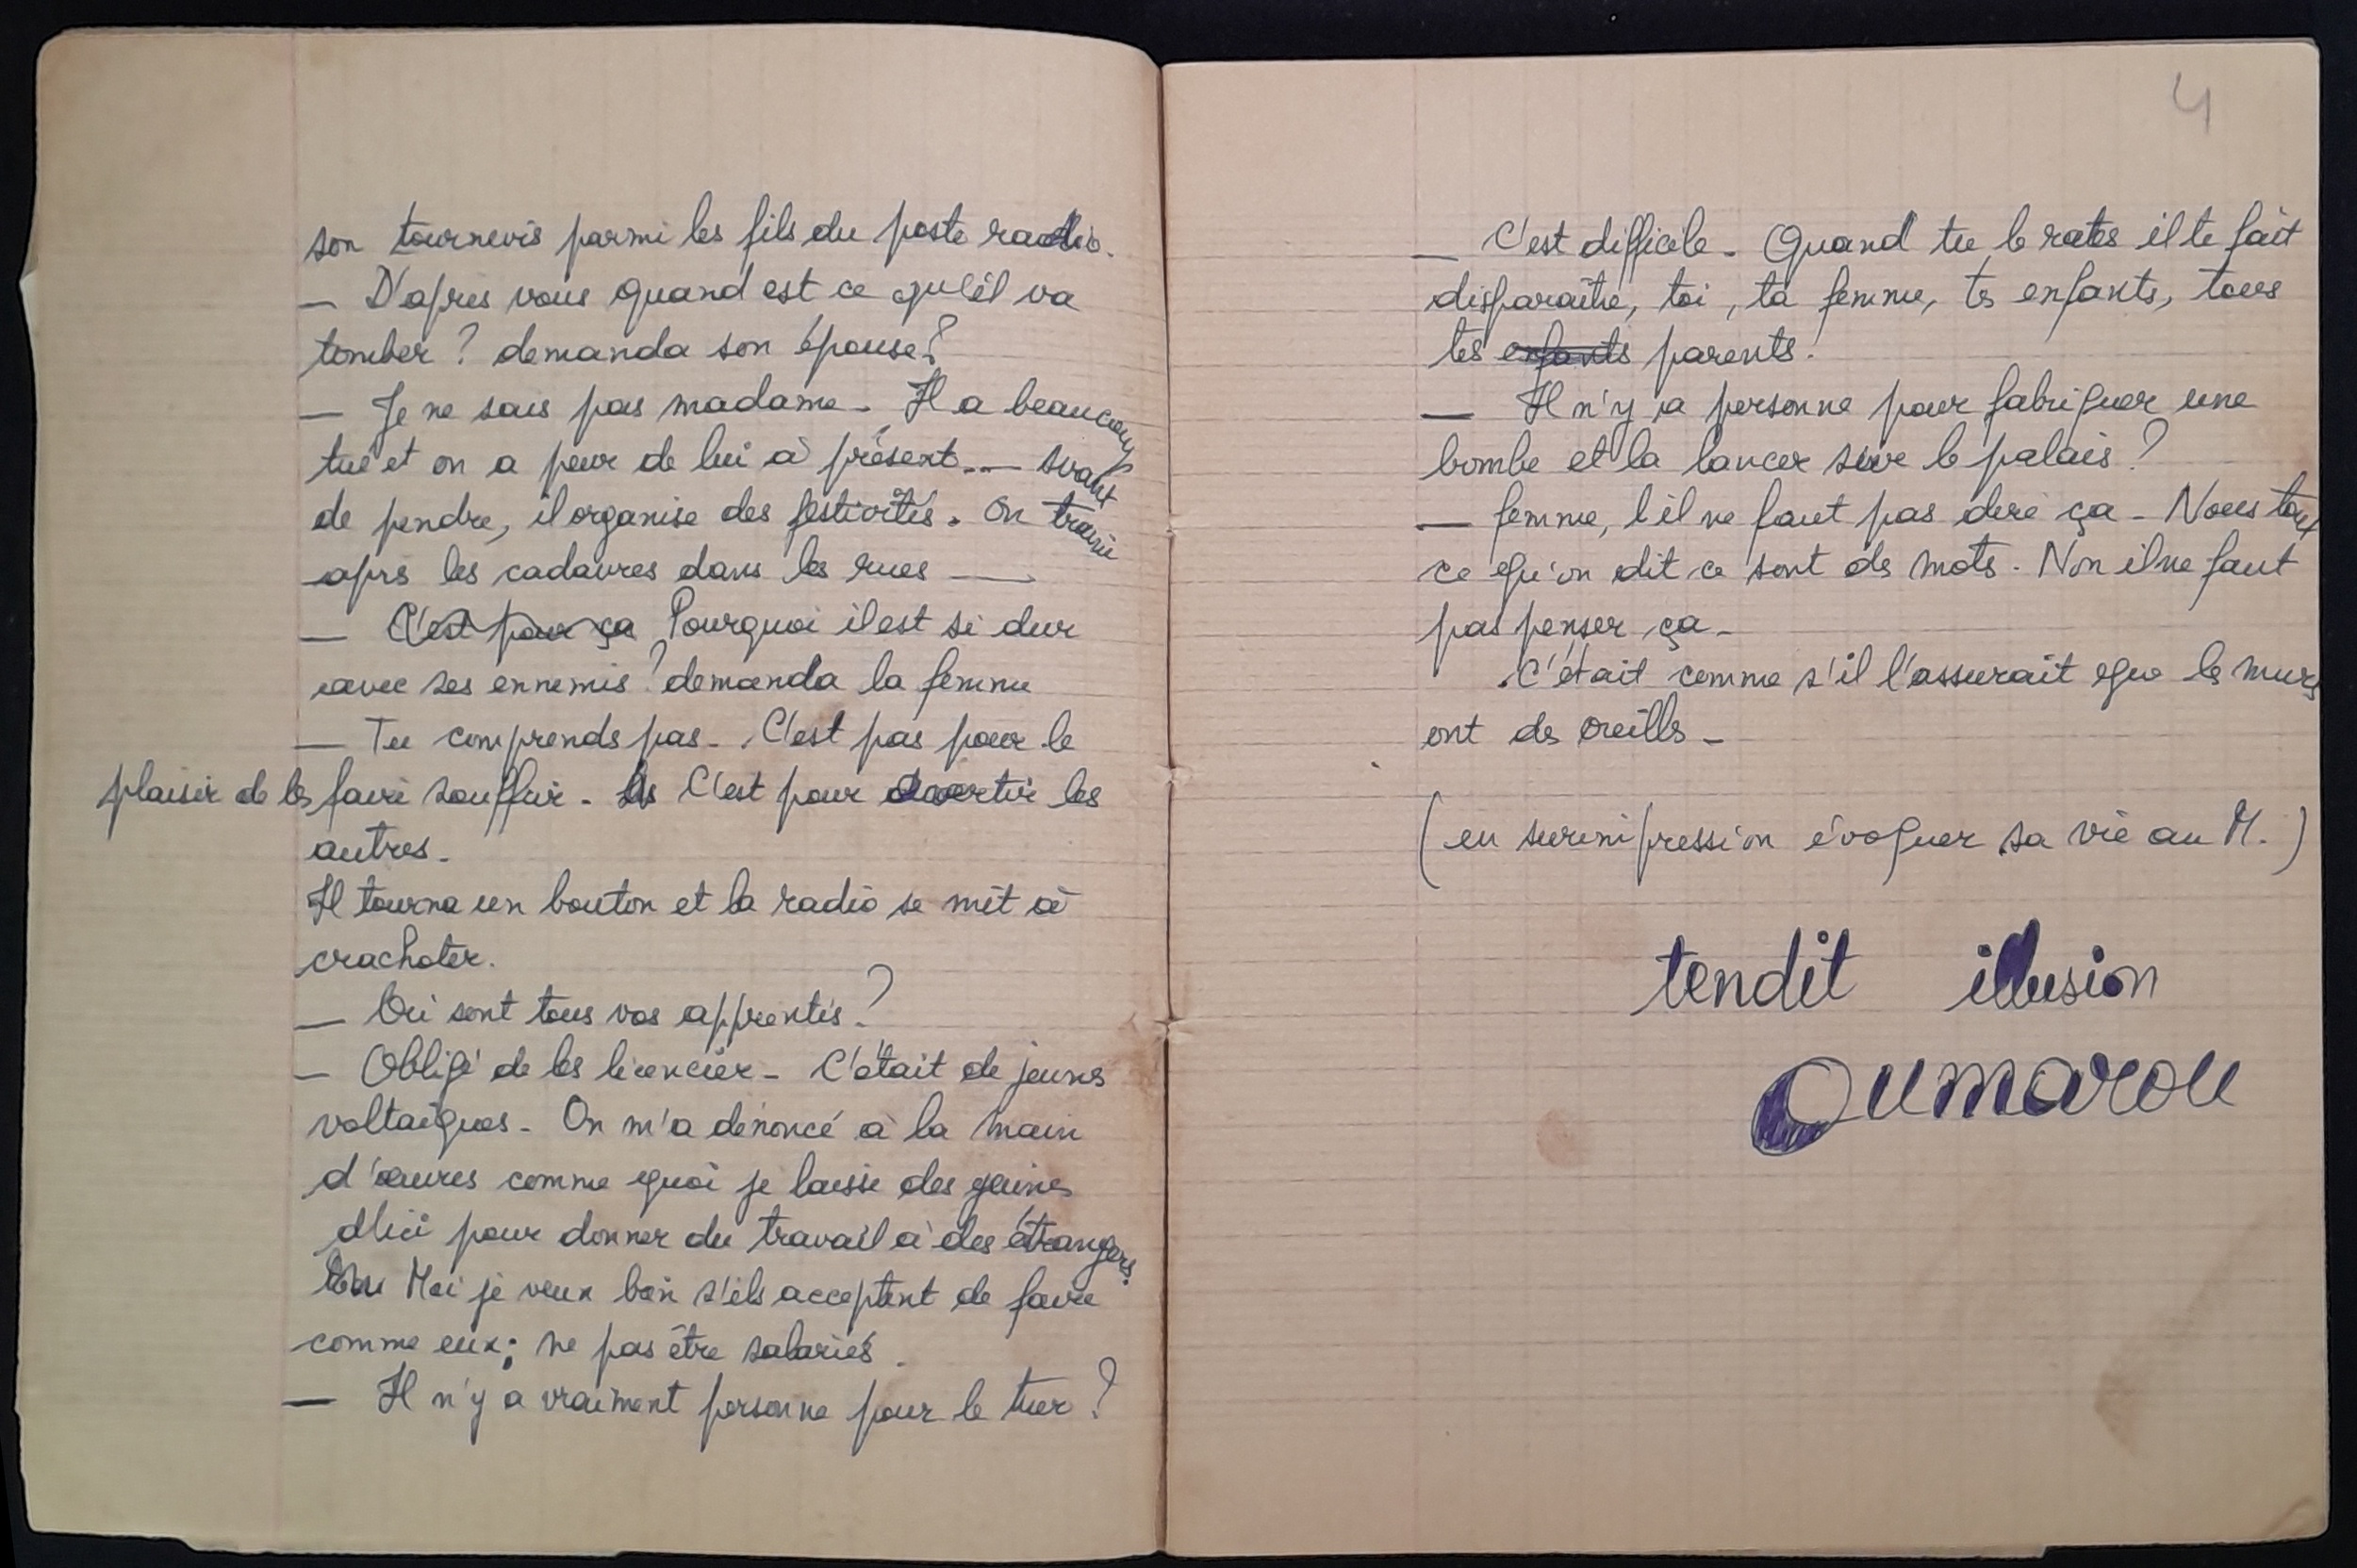 son tournevis parmi les fils du poste radio.
— D'apres vous quand est ce qu'il va
tomber ? demanda son épouse ?
— Je ne sais pas madame. Il a beaucoup
tué et on a peur de lui à présent... avant
de pendre, il organise des festivités. On traine
après les cadavres dans les rues —
— C'est pour ça Pourquoi il est si dur
avec ses ennemis ? demanda la femme
— Tu comprends pas. C'est pas pour le
plaisir de les faire souffrir. C'est pour avertir les
autres.
Il tourna un bouton et la radio se mit à
crachoter.
— Où sont tous vos apprentis ?
— Obligé de les licencier. C'était de jeunes
voltaïques. On m'a dénoncé à la main
d'œuvres comme quoi je laisse des jeunes
d'ici pour donner du travail à des étrangers.
Moi je veux bien s'ils acceptent de faire
comme eux ; ne pas être salariés.
— Il n'y a vraiment personne pour le tuer ?
4
— C'est difficile. Quand tu le rates il te fait
disparaître, toi, ta femme, tes enfants, tous
tes enfants parents.
— Il n'y a personne pour fabriquer une
bombe et la lancer sur le palais ?
— femme, il ne faut pas dire ça. Nous tout
ce qu'on dit ce sont des mots. Non il ne faut
pas penser ça.
C'était comme s'il l'assurait que les murs
ont des oreilles.
(en surimpression évoquer sa vie au M.)
tendit illusion
Oumarou